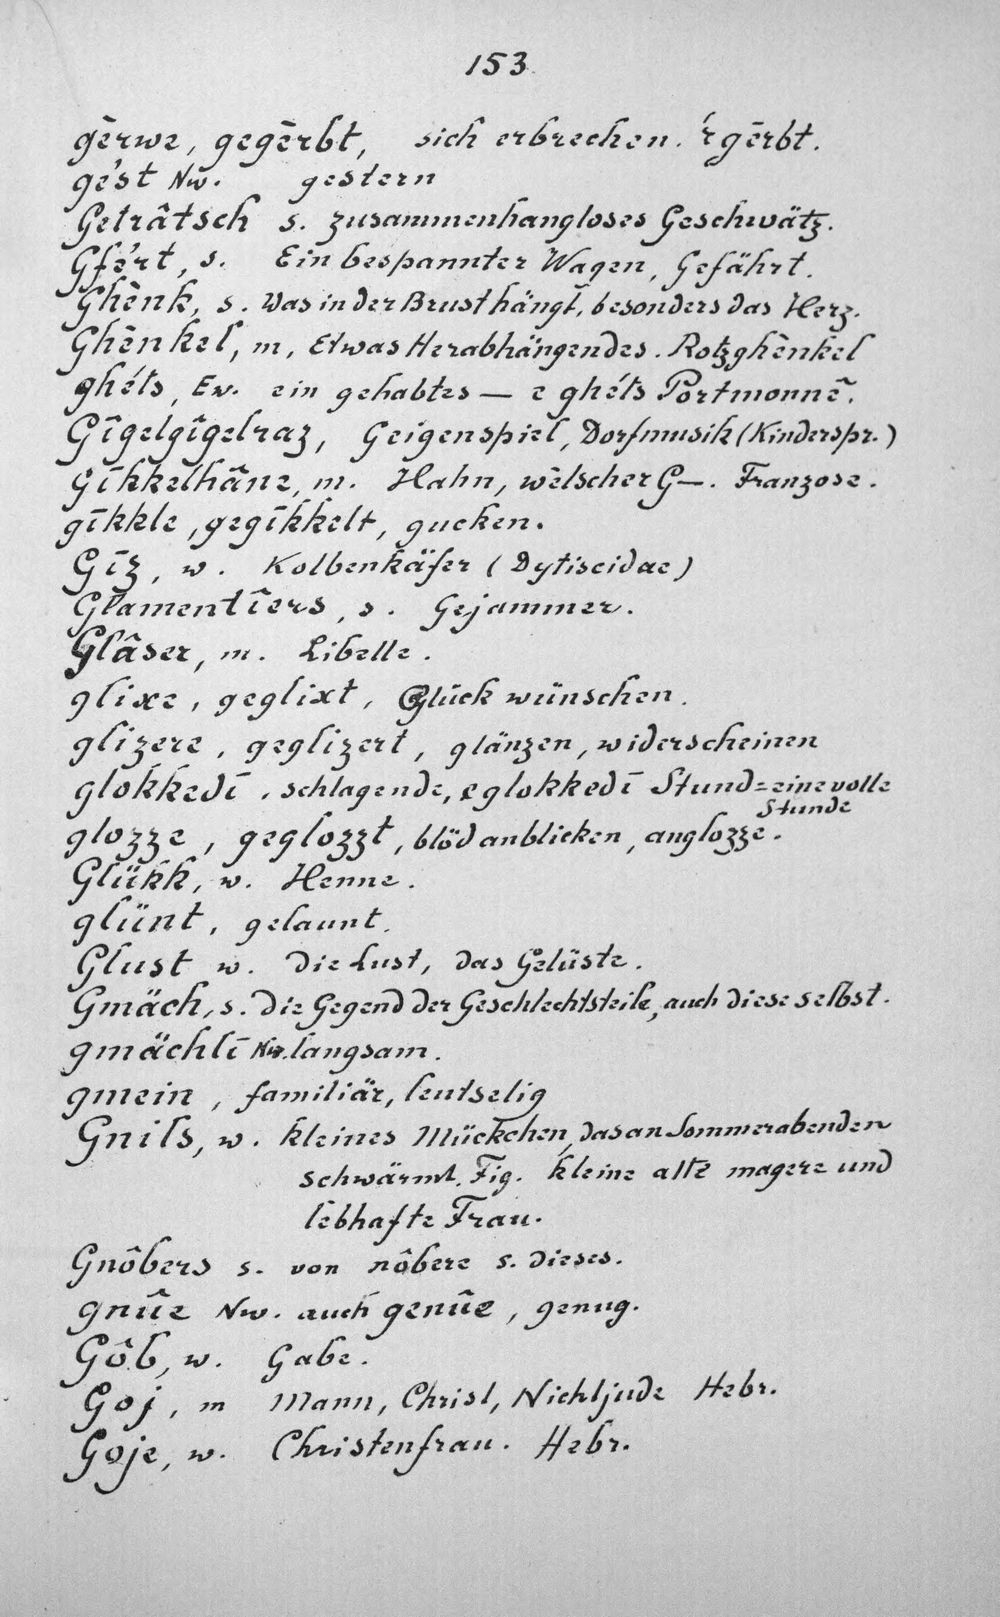 153
gērwe, gegērbt, sich erbrechen. 'r gērbt.
gést Nw. gestern
Geträtsch s. zusammenhangloses Geschwätz.
Gfért, s. Ein bespannter Wagen, Gefährt.
Ghènk, s. Was in der Brust hängt, besonders das Herz.
Ghènkel, m, Etwas Herabhängendes. Rotzghènkel
ghéts, Ew. ein gehabtes — e ghéts Portmonnē.
Gîgelgîgelraz, Geigenspiel, Dorfmusik (Kinderspr.)
Gīkkelhâne, m. Hahn, wèlscher G—. Franzose.
gīkkle, gegīkkelt, gucken.
Gīz, w. Kolbenkäfer (Dytiscidae)
Glamentîers, s. Gejammer.
Glâser, m. Libelle.
glixe, geglixt, Glück wünschen.
glizere, geglizert, glänzen, widerscheinen
glokkedī, schlagende, e glokkedī Stund = eine volle
Stunde
glozze, geglozzt, blöd anblicken, anglozze.
Glükk, w. Henne.
glünt, gelaunt.
Glust w. die Lust, das Gelüste.
Gmäch, s. die Gegend der Geschlechtsteile, auch diese selbst.
gmächlī Nw. langsam.
gmein, familiär, leutselig
Gnils, w. kleines Mückchen, das an Sommerabenden
schwärmt. Fig. kleine alte magere und
lebhafte Frau.
Gnôbers s. von nôbere s. dieses.
gnûe Nw. auch genûe, genug.
Gôb, w. Gabe.
Goj, m Mann, Christ, Nichtjude Hebr.
Goje, w. Christenfrau. Hebr.